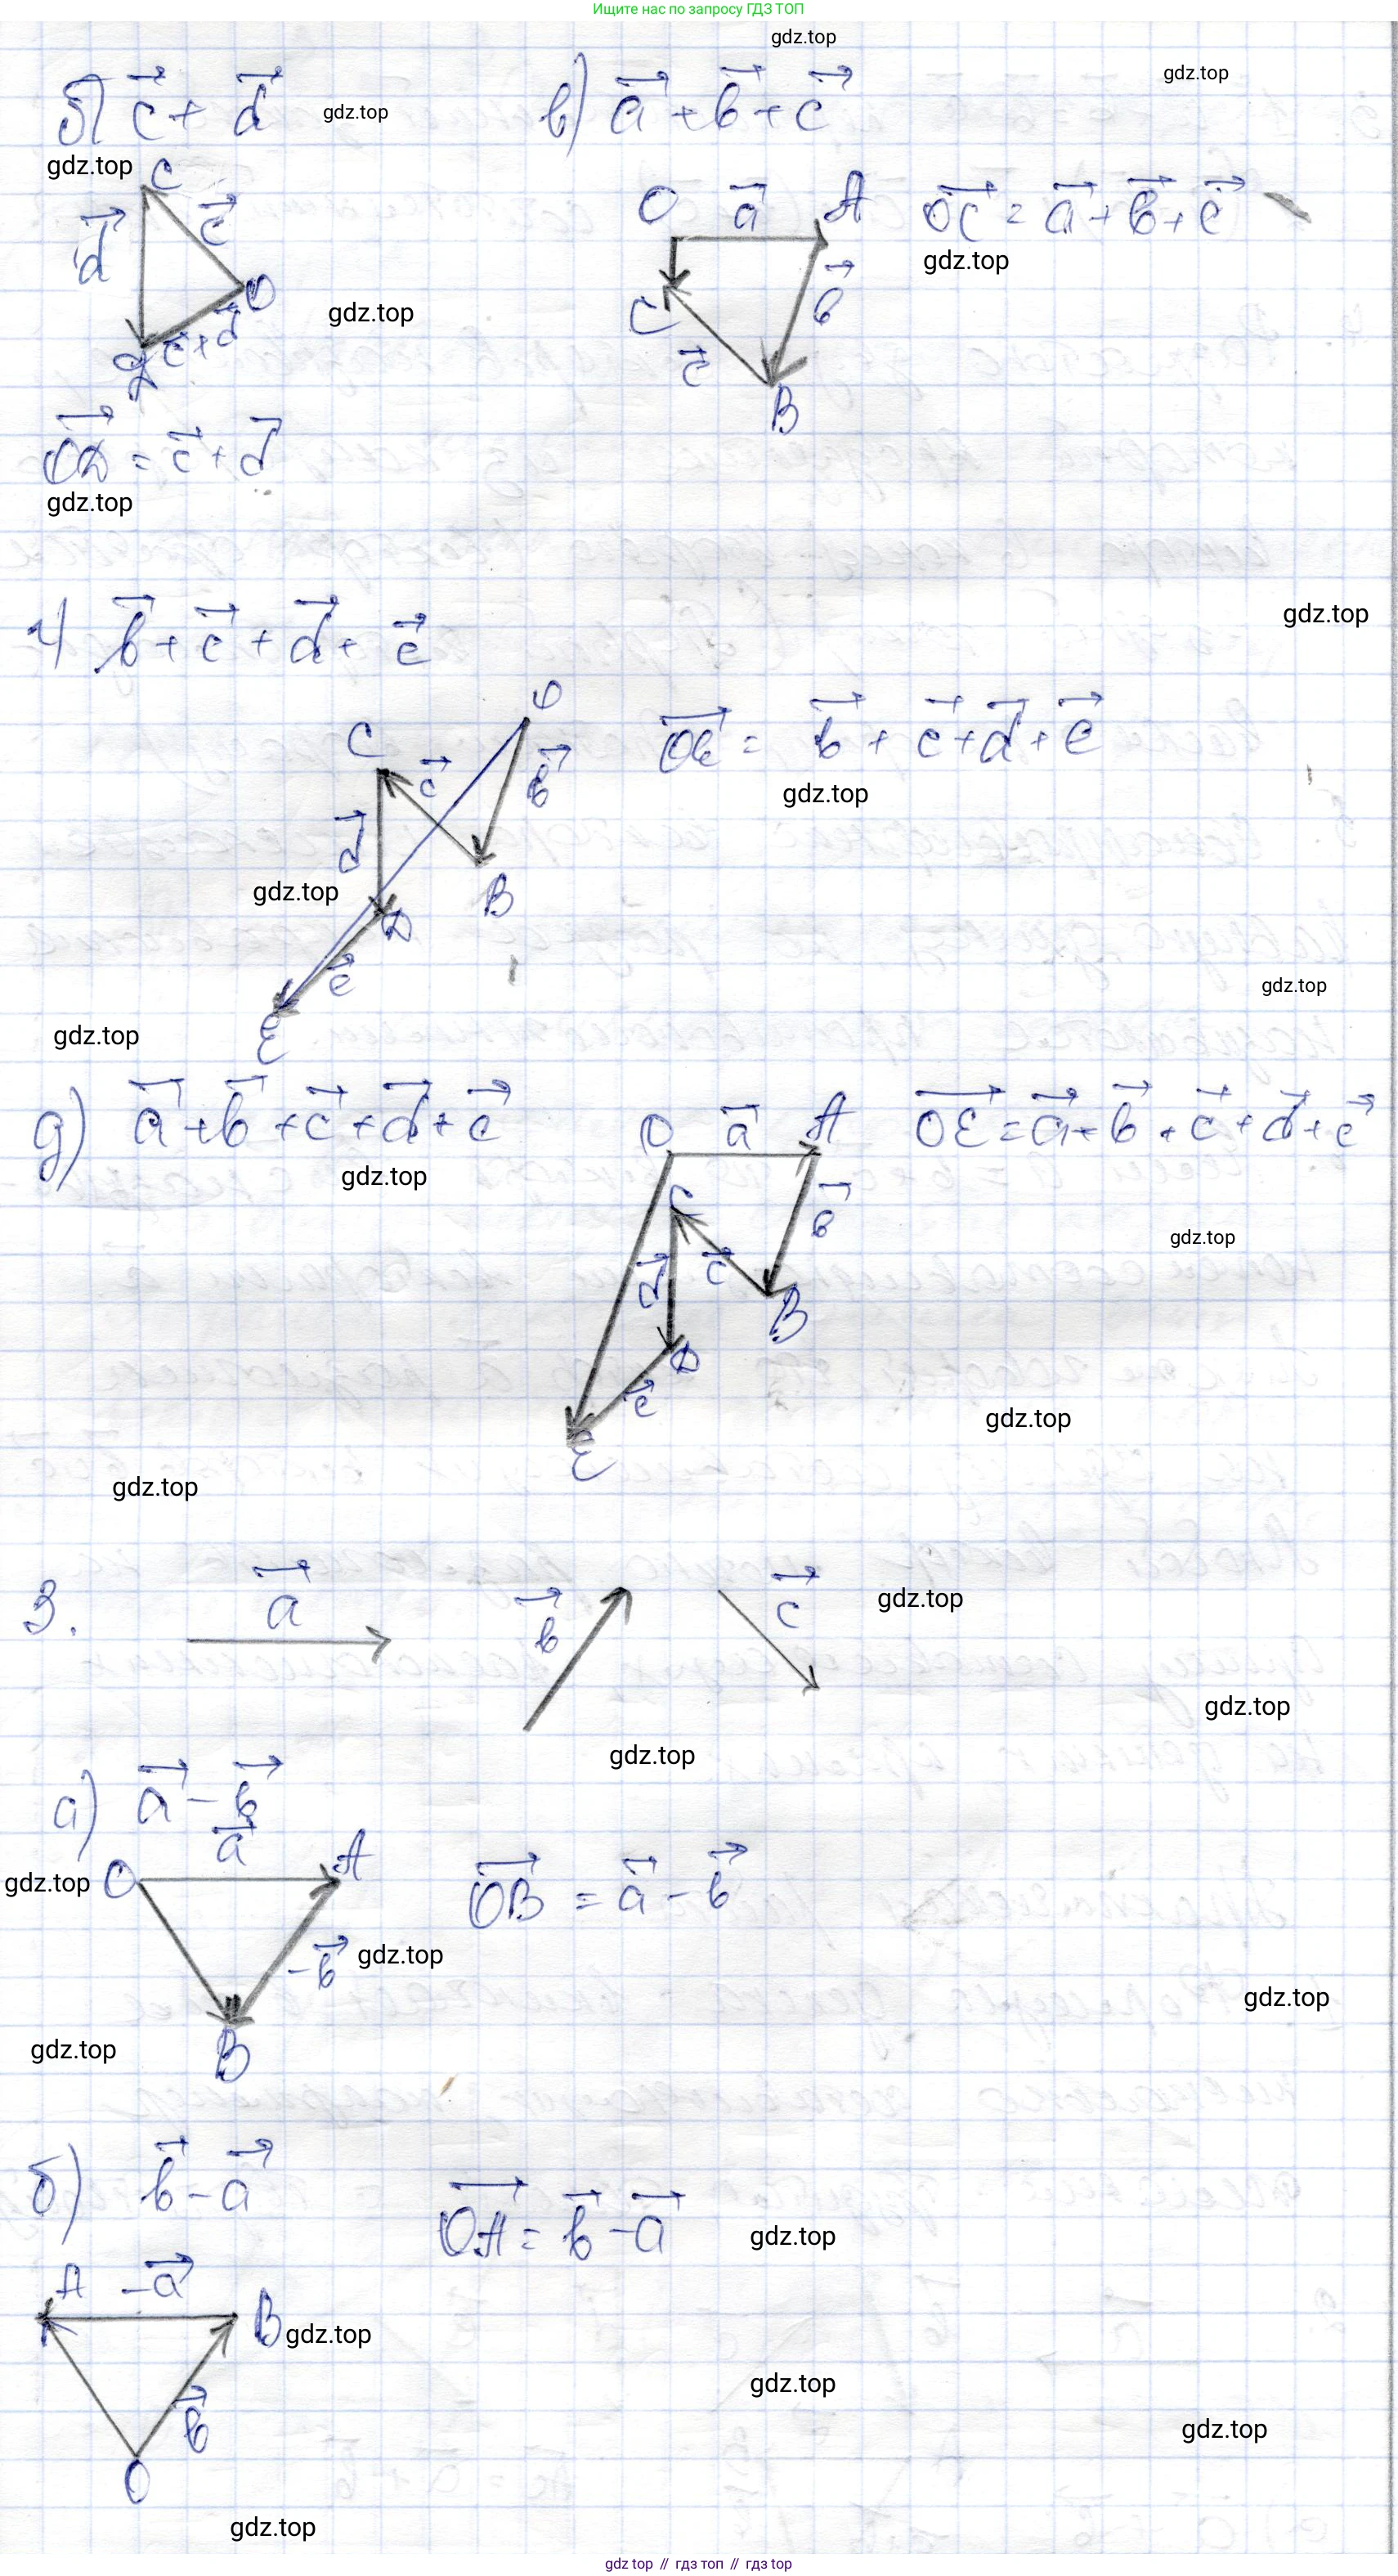 Ищите нас по запросу ГДЗ ТОП
gdz.top
gdz.top
б) c + d
gdz.top
в) a + b + c
gdz.top
C
d
c
O
c + d
D
O
a
A
OC = a + b + c
gdz.top
gdz.top
b
C
c
B
OD = c + d
gdz.top
г) b + c + d + e
gdz.top
O
C
c
b
OE = b + c + d + e
gdz.top
d
gdz.top
B
D
e
gdz.top
gdz.top
E
д) a + b + c + d + e
gdz.top
O
a
A
OE = a + b + c + d + e
C
b
gdz.top
c
d
B
D
e
gdz.top
E
gdz.top
3.
a
b
c
gdz.top
gdz.top
gdz.top
а) a - b
a
gdz.top
O
A
OB = a - b
-b
gdz.top
gdz.top
gdz.top
B
б) b - a
OA = b - a
gdz.top
A
-a
B
gdz.top
gdz.top
b
gdz.top
O
gdz.top
gdz top // гдз топ // gdz top